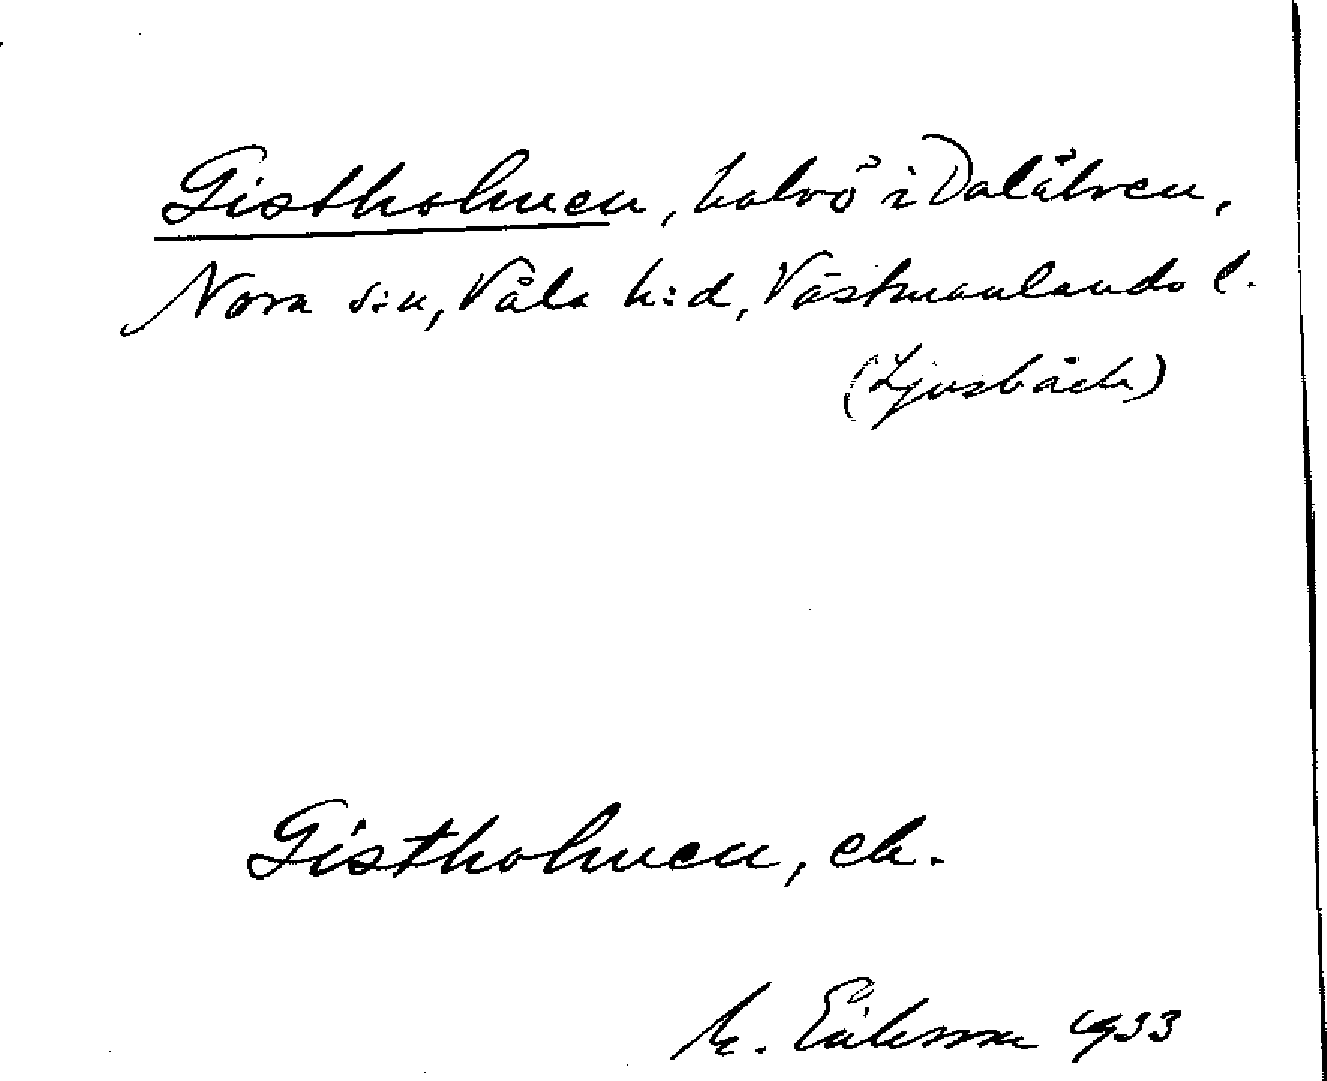 Gistholmen, halvö i Dalälven,
Nora s:n, Våla h:d, Västmanlands l.
(Ljusbäck)
Gistholmen, ek.
M. Eriksson 1933